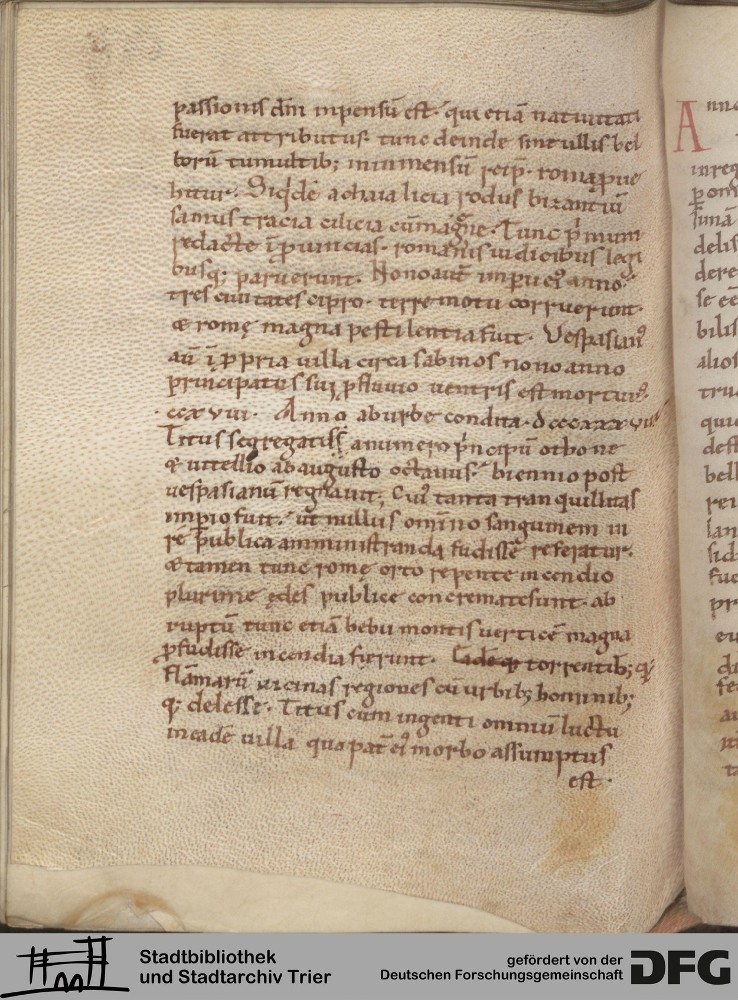 passionis dn̄i inpensū est· qui etiā natiuitati
fuerat attributus· tunc deinde sint ullis bel
lorū tumultib; in inmensū reip̄· romę puę
hitur· Siqdē achaia licia rodus bizantiū
samus tracia cilicia cūmagēne· Tunc p̄mum
redacte ī ꝓuincias· romanis iudicibus legi
busq; paruerunt· Nono aut̄ imp̄ii ei⁹ anno·
tres ciuitates cipro· terre motu corruerunt·
& romę magna pestilentia fuit· Vespasian⁹
aū ī ꝓpria uilla circa sabinos nono anno
principatus sui ꝓfluuio uentris est mortuus·
·ccxviii· Anno ab urbe condita· dcccxxviii
Titus segregatis a numero p̄ncipū othone
& uitellio ab augusto octauus· biennio post
uespasianū regnauit; Cui⁹ tanta tranquillitas
imp̄io fuit· ut nullius om̄ino sanguinem in
re publica amministranda fudisse referatur·
& tamen tunc romę orto repente incendio
plurime ędes publice concremate sunt· ab
ruptū tunc etiā bebii montis uerticē magna
ꝓfudisse incendia fierunt· torrentib; q;
flāmarū uicinas regiones cū urbib; hominib;
q; delesse· Titus cum ingenti omniū luctu
in eadē uilla qua pat̄ ei⁹ morbo assumptus
est·
A nno
inreg
p om
simā
delis
dere
se eē
bilis
alios
tru
qui
dest
bell
rei
lan
sid
fue
pr
eu
di
fe
Stadtbibliothek
und Stadtarchiv Trier
gefördert von der
Deutschen Forschungsgemeinschaft
DFG